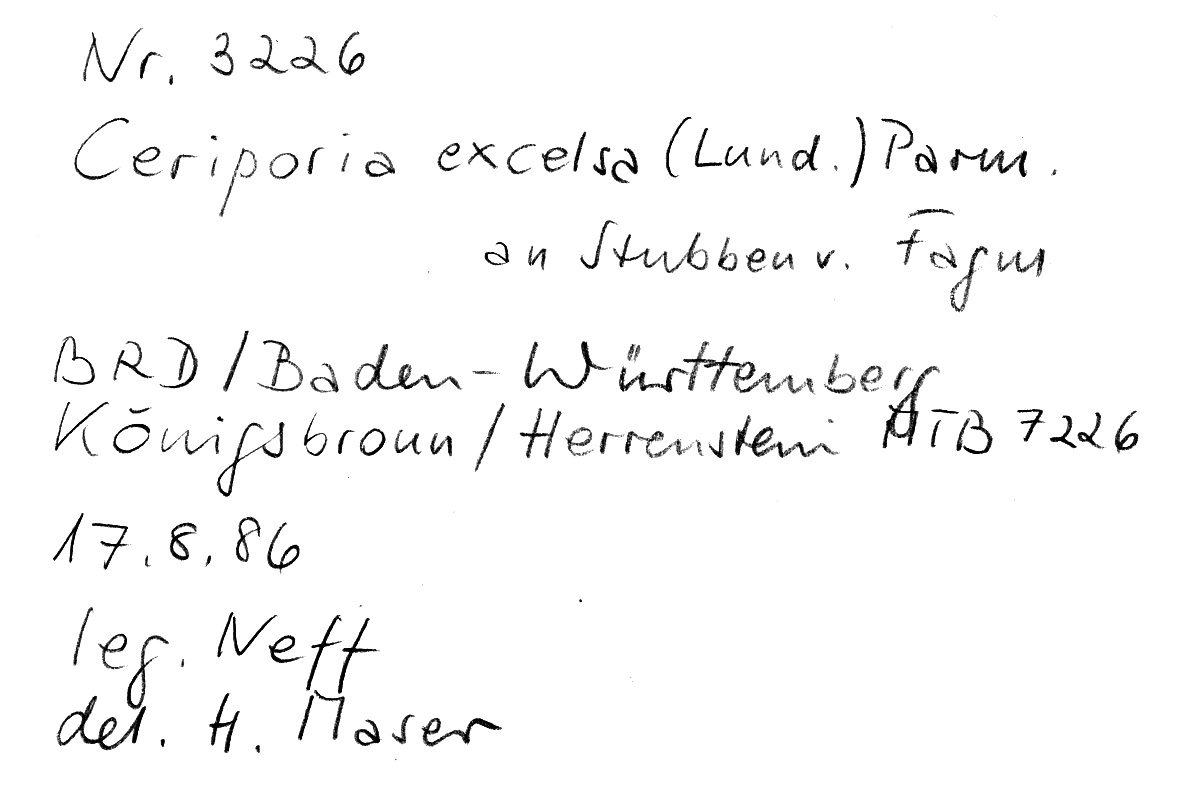 Nr. 3226
Ceriporia excelsa (Lund.) Parm.
an Stubben v. Fagus
BRD / Baden-Württemberg
Königsbronn / Herrenstein MTB 7226
17.8.86
leg. Neff
det. H. Maser